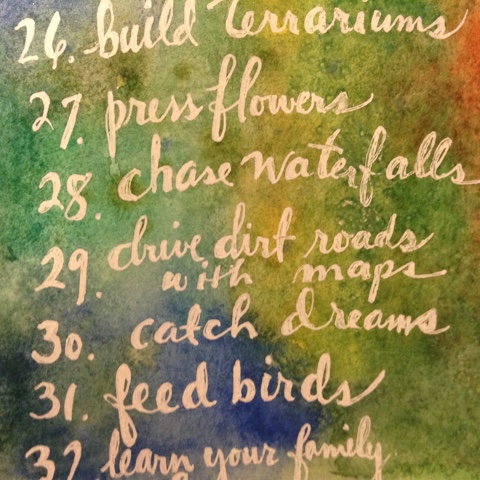 26. build terrariums
27. press flowers
28. chase waterfalls
29. drive dirt roads
with maps
30. catch dreams
31. feed birds
32 learn your family